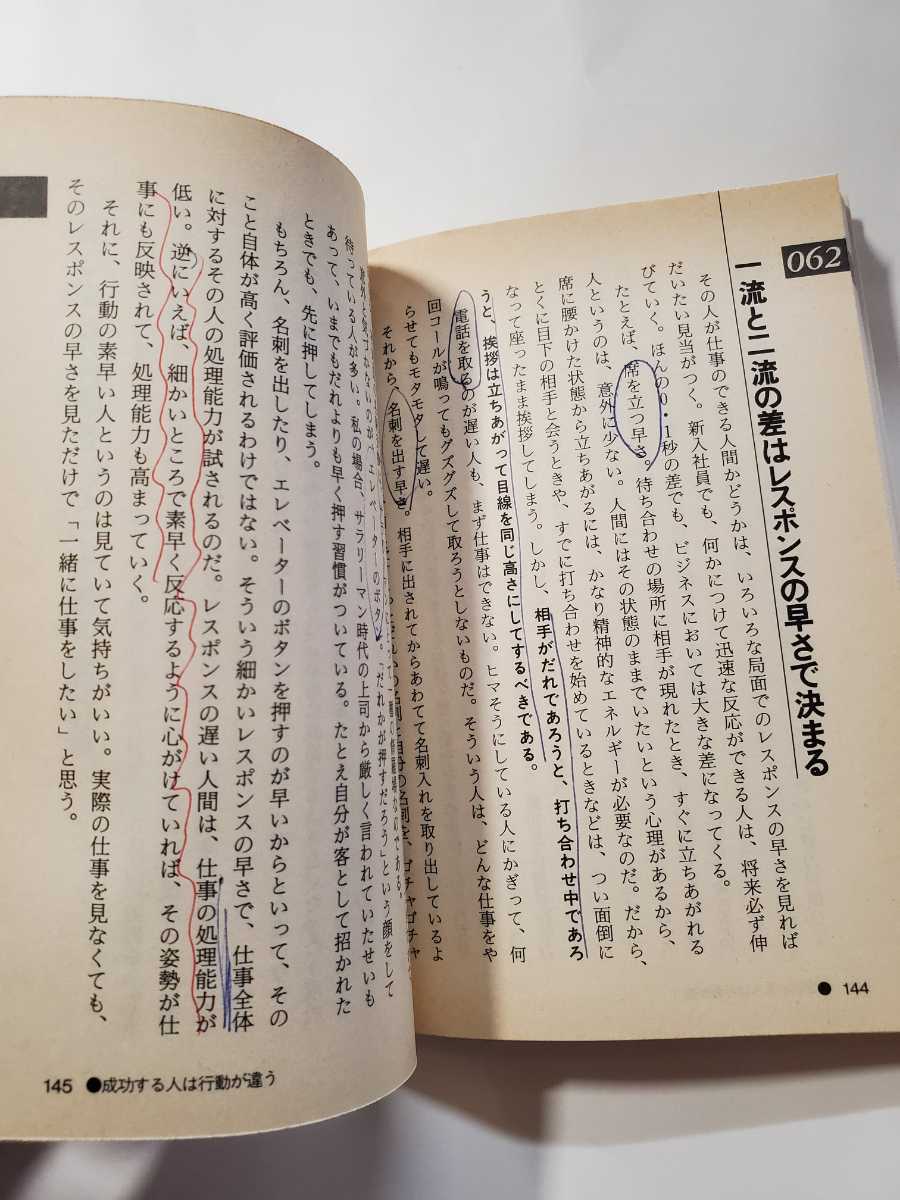 062
一流と二流の差はレスポンスの早さで決まる
その人が仕事のできる人間かどうかは、いろいろな局面でのレスポンスの早さを見れば
だいたい見当がつく。新入社員でも、何かにつけて迅速な反応ができる人は、将来必ず伸
びていく。ほんの0・1秒の差でも、ビジネスにおいては大きな差になってくる。
たとえば、席を立つ早さ。待ち合わせの場所に相手が現れたとき、すぐに立ちあがれる
人というのは、意外に少ない。人間にはその状態のままでいたいという心理があるから、
席に腰かけた状態から立ちあがるには、かなり精神的なエネルギーが必要なのだ。だから、
とくに目下の相手と会うときや、すでに打ち合わせを始めているときなどは、つい面倒に
なって座ったまま挨拶してしまう。しかし、相手がだれであろうと、打ち合わせ中であろ
うと、挨拶は立ちあがって目線を同じ高さにしてするべきである。
電話を取るのが遅い人も、まず仕事はできない。ヒマそうにしている人にかぎって、何
回コールが鳴ってもグズグズして取ろうとしないものだ。そういう人は、どんな仕事をや
らせてもモタモタして遅い。
それから、名刺を出す早さ。相手に出されてからあわてて名刺入れを取り出しているよ
● 144
エレベーターのボタン。「だれかが押すだろう」という顔をして
待っている人が多い。私の場合、サラリーマン時代の上司から厳しく言われていたせいも
あって、いまでもだれよりも早く押す習慣がついている。たとえ自分が客として招かれた
ときでも、先に押してしまう。
もちろん、名刺を出したり、エレベーターのボタンを押すのが早いからといって、その
こと自体が高く評価されるわけではない。そういう細かいレスポンスの早さで、仕事全体
に対するその人の処理能力が試されるのだ。レスポンスの遅い人間は、仕事の処理能力が
低い。逆にいえば、細かいところで素早く反応するように心がけていれば、その姿勢が仕
事にも反映されて、処理能力も高まっていく。
それに、行動の素早い人というのは見ていて気持ちがいい。実際の仕事を見なくても、
そのレスポンスの早さを見ただけで「一緒に仕事をしたい」と思う。
145 ●成功する人は行動が違う